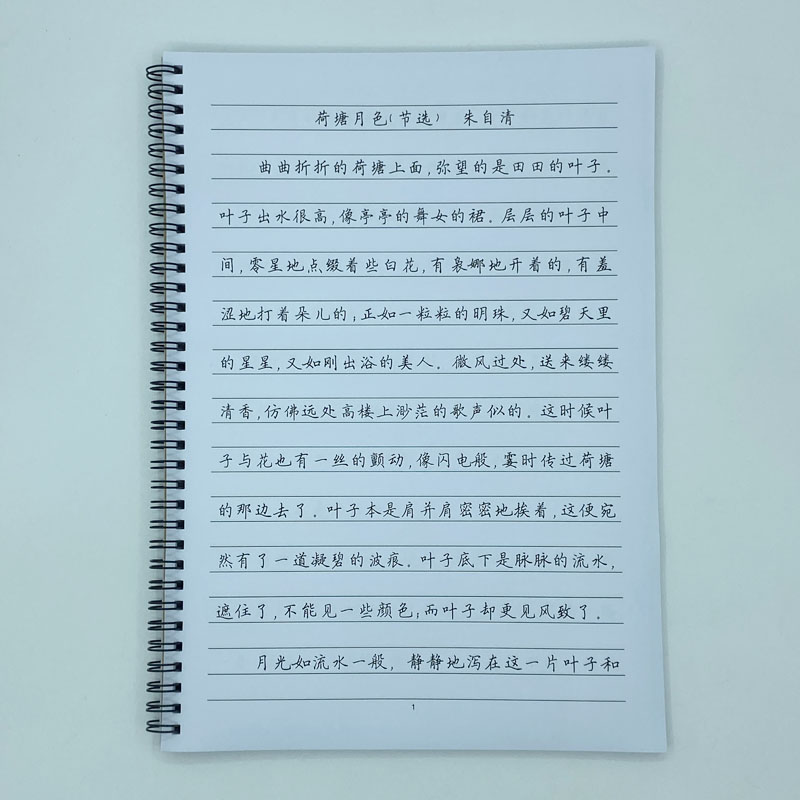 荷塘月色(节选) 朱自清
曲曲折折的荷塘上面,弥望的是田田的叶子。
叶子出水很高,像亭亭的舞女的裙。层层的叶子中
间,零星地点缀着些白花,有袅娜地开着的,有羞
涩地打着朵儿的;正如一粒粒的明珠,又如碧天里
的星星,又如刚出浴的美人。微风过处,送来缕缕
清香,仿佛远处高楼上渺茫的歌声似的。这时候叶
子与花也有一丝的颤动,像闪电般,霎时传过荷塘
的那边去了。叶子本是肩并肩密密地挨着,这便宛
然有了一道凝碧的波痕。叶子底下是脉脉的流水,
遮住了,不能见一些颜色;而叶子却更见风致了。
月光如流水一般,静静地泻在这一片叶子和
1